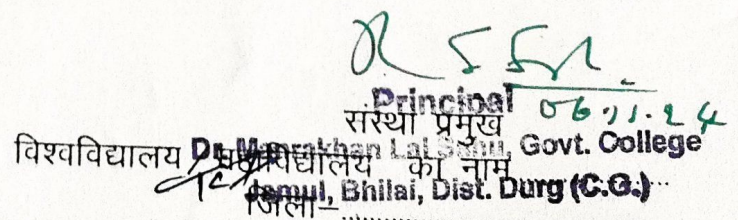 Principal 06.11.24
संस्था प्रमुख
विश्वविद्यालय / महाविद्यालय का नाम
Dr. Manrakhan Lal Sahu, Govt. College
जिला–
Jamul, Bhilai, Dist. Durg (C.G.)